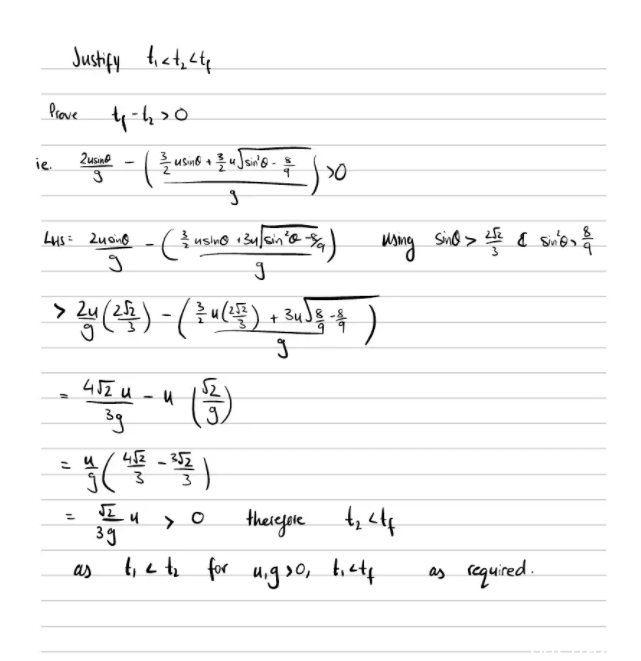 Justify t₁<t₂<t_f
Prove t_f - t₂ > 0
ie. 2usinθ/g - ((3/2 usinθ + 3/2 u√(sin²θ - 8/9))/g) >0
LHS = 2usinθ/g - ((3/2 usinθ + 3u√(sin²θ - 8/9))/g) using sinθ > 2√2/3 & sin²θ > 8/9
> 2u/g (2√2/3) - ((3/2 u(2√2/3) + 3u√(8/9 - 8/9))/g)
= 4√2 u/3g - u (√2/g)
= u/g (4√2/3 - 3√2/3)
= √2/3g u > 0 therefore t₂ < t_f
as t₁ < t₂ for u,g >0, t₁<t_f as required.